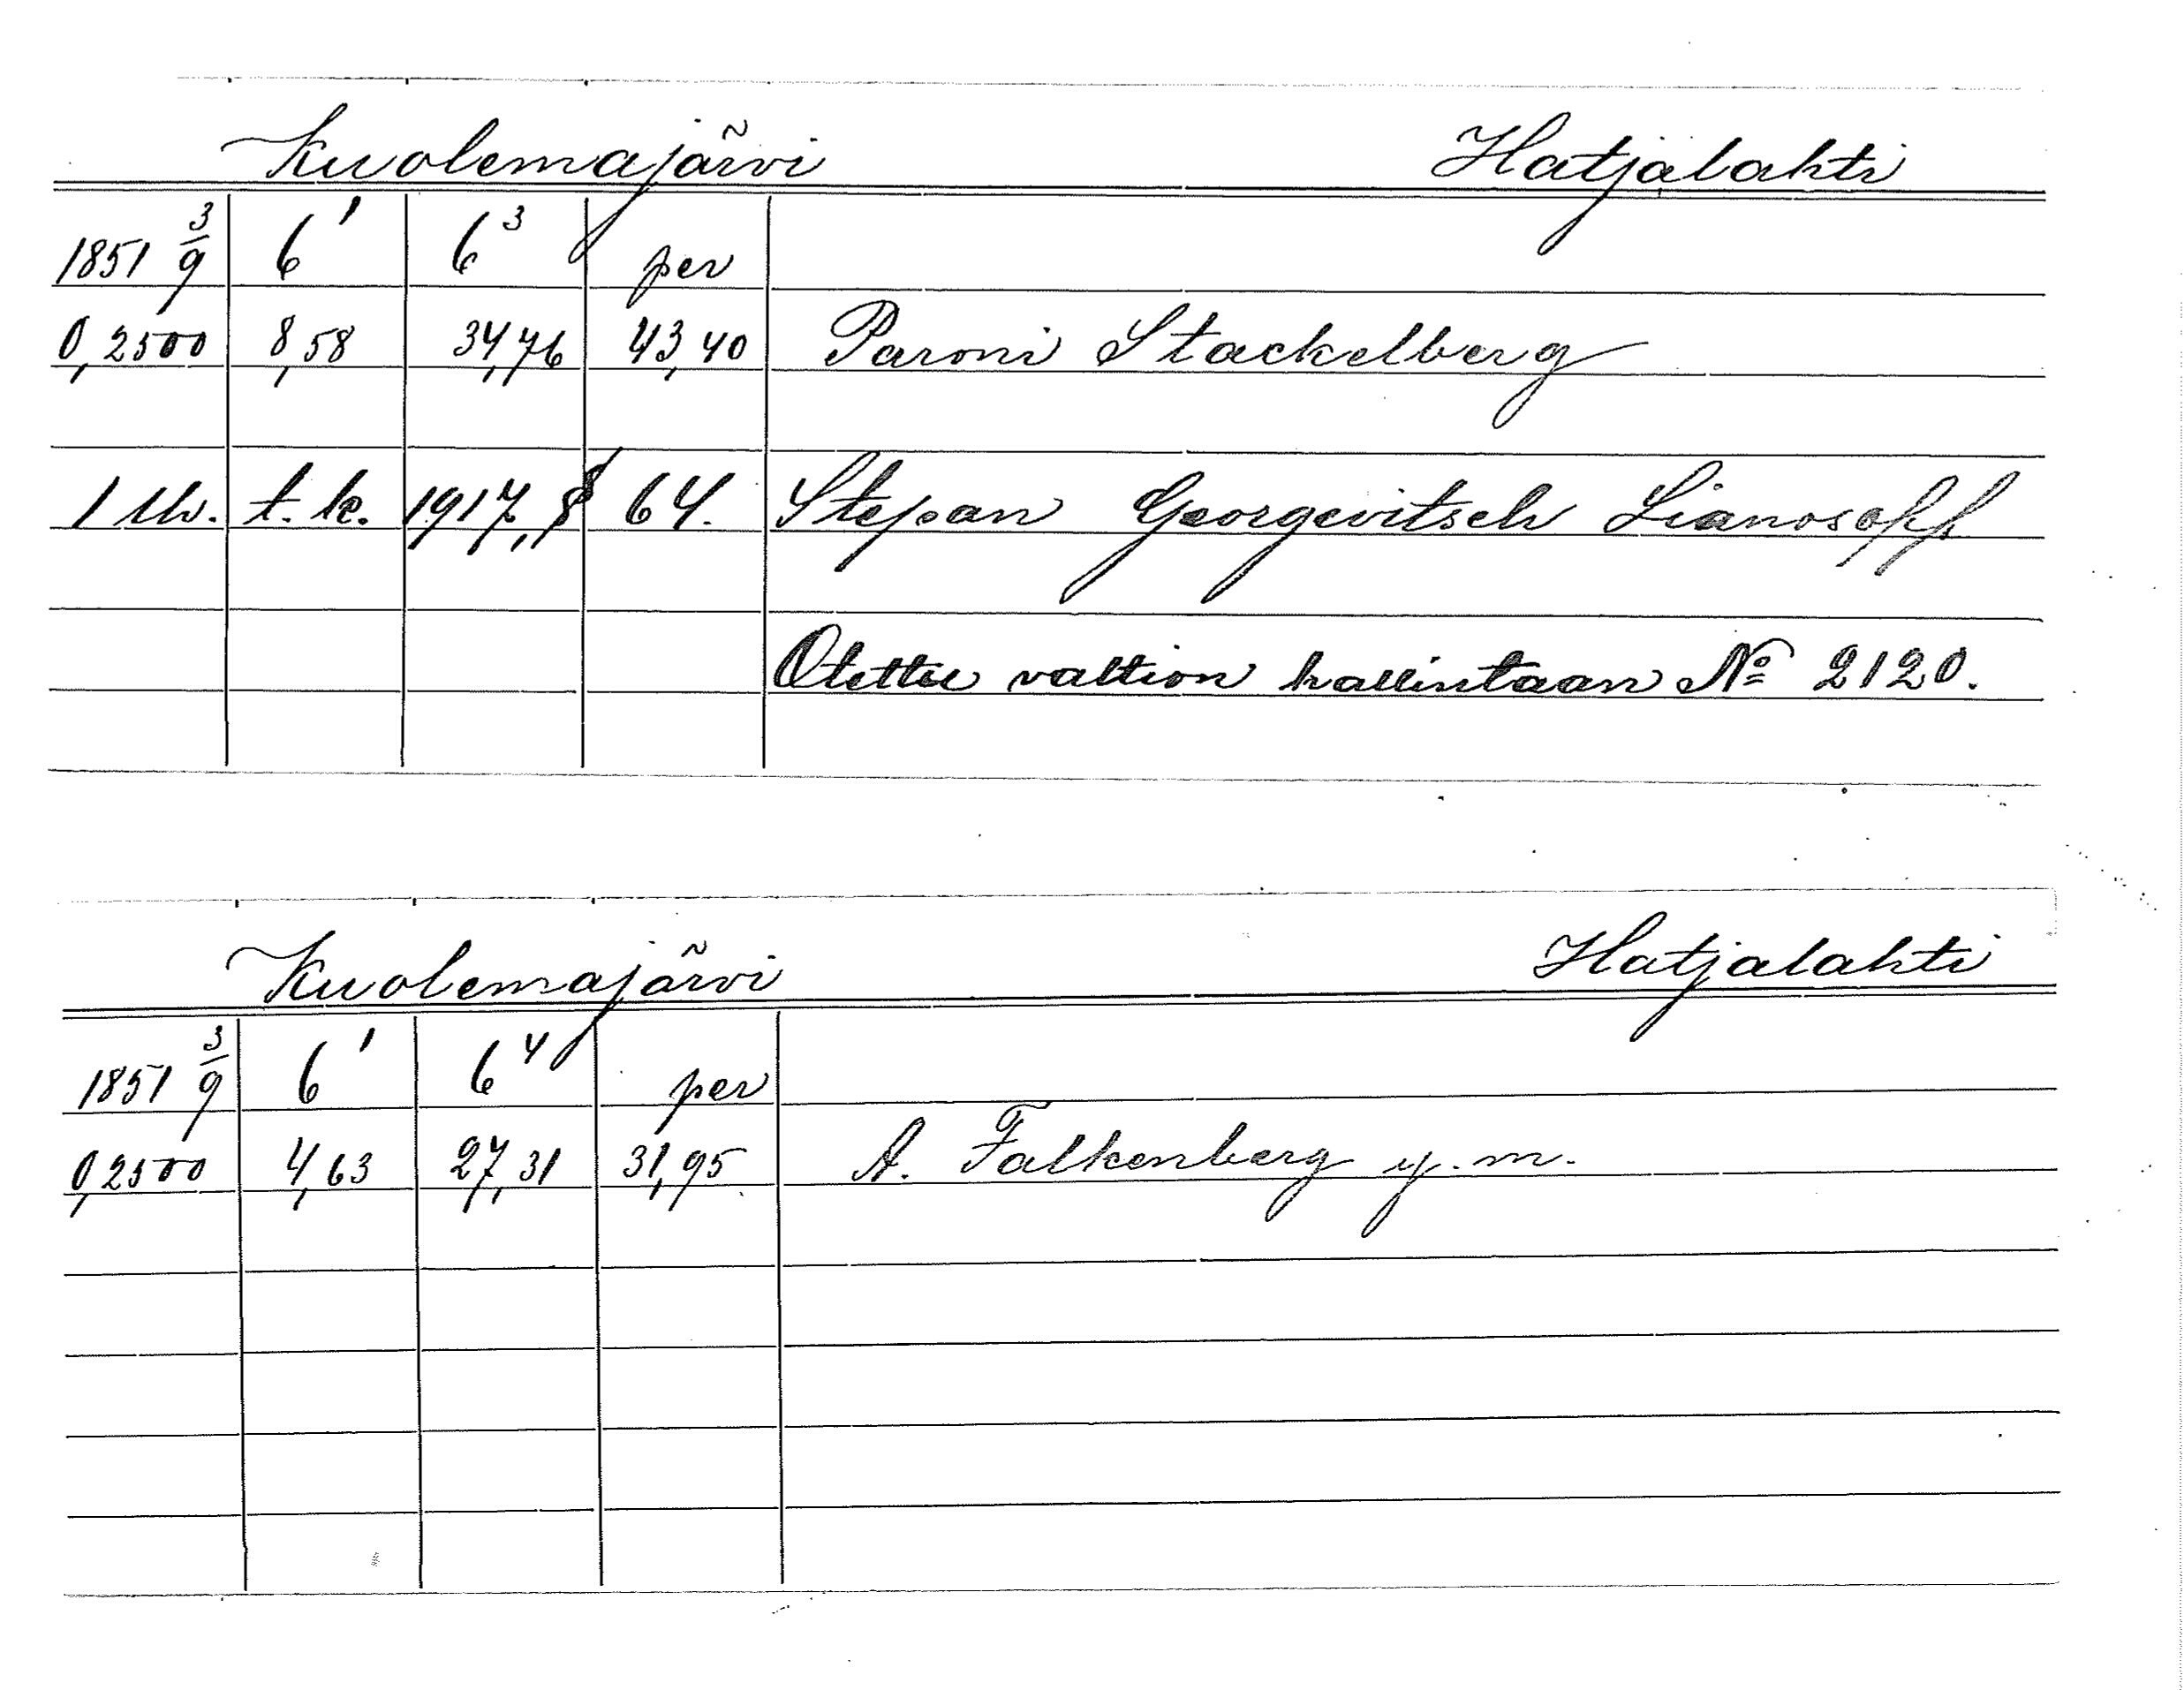 Kuolemajärvi Hatjalahti
1851 3/9 6¹ 6³ per
0,2500 8,58 34,76 43,40 Paroni Stackelberg
t. k. 1917, § 64. Stepan Georgevitsch Lianosoff
Otettu valtion hallintaan Nº 2120.
Kuolemajärvi Hatjalahti
1851 3/9 6¹ 6⁴ per
0,2500 4,63 27,31 31,95 A. Falkenberg y. m.